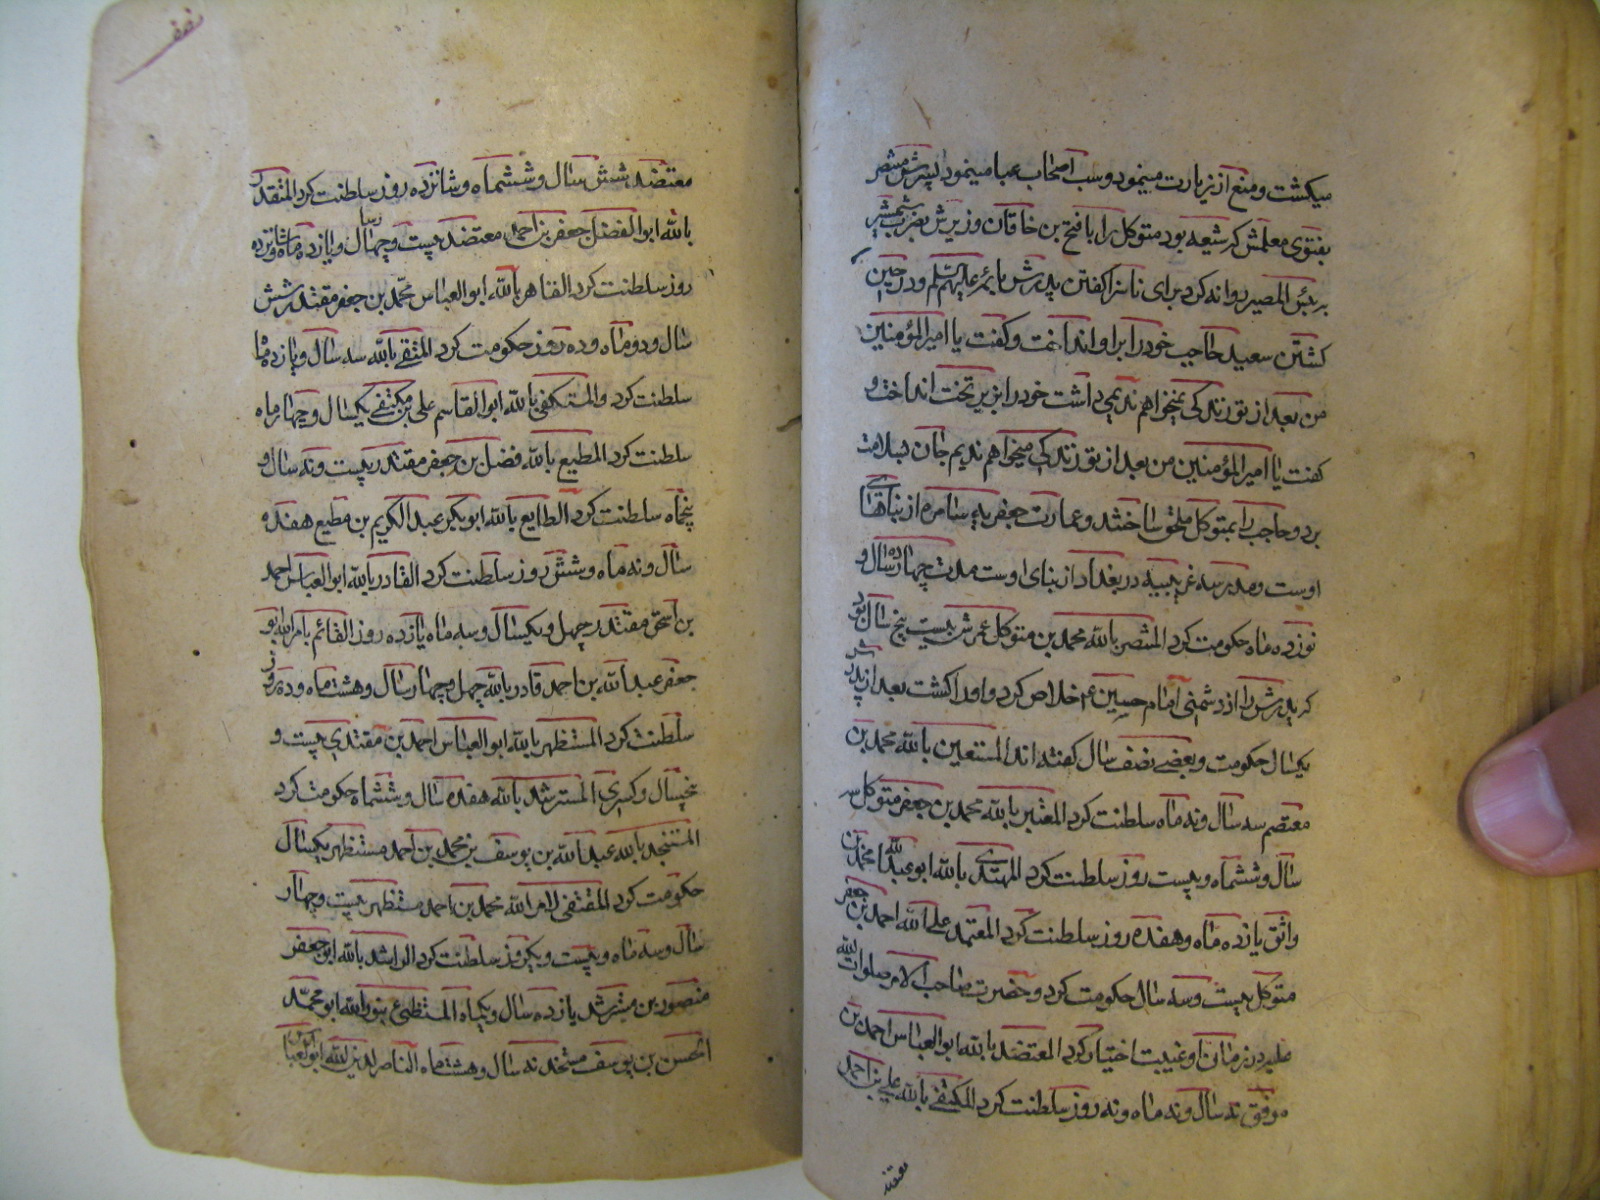 میکشت و منع از زیارت مینمود و سب اصحاب عبا مینمود پسرش منتصر
بفتوی معلمش که شیعه بود متوکل را با فتح بن خاقان وزیرش بضرب شمشیر
به بئس المصیر روانه کرد برای ناسزا کفتن پدرش بائمه علیهم السلم و در حین
کشتن سعید حاجب خود را بر او انداخت و کفت یا امیر المؤمنین
من بعد از تو زندکی نمیخواهم ندیمی داشت خود را بزیر تخت انداخت و
کفت یا امیر المؤمنین من بعد از تو زندکی میخواهم ندیم جان بسلامت
برد و حاجب را بمتوکل ملحق ساختند و عمارت جعفریه سامره از بناهای
اوست و مدرسه غریبیه در بغداد از بنای اوست مدت چهارده سال و
نوزده ماه حکومت کرد المنتصر بالله محمد بن متوکل عمرش بیست پنج سال بود
که پدرش را از دشمنی امام حسین ع خلاص کرد و او را کشت بعد از پدرش
یکسال حکومت و بعضی نصف سال کفته اند المستعین بالله محمد بن
معتصم سه سال و نه ماه سلطنت کرد المعتبر بالله محمد بن جعفر متوکل سه
سال و ششماه و بیست روز سلطنت کرد المهتدی بالله ابو عبدالله محمد بن
واثق یازده ماه و هفده روز سلطنت کرد المعتمد علی الله احمد بن جعفر
متوکل بیست و سه سال حکومت کرد و حضرت صاحب الامر صلوات الله
علیه در زمان او غیبت اختیار کرد المعتضد بالله ابو العباس احمد بن
موفق نه سال و نه ماه و نه روز سلطنت کرد المکتفی بالله علی بن احمد
معتضد
معتضد شش سال و ششماه و شانزده روز سلطنت کرد المقتدر
بالله ابو الفضل جعفر بن احمد معتضد بیست و چهار سال و یازده ماه شانزده
روز سلطنت کرد القاهر بالله ابو العباس محمد بن جعفر مقتدر شش
سال و دو ماه و ده روز حکومت کرد المتقی بالله سه سال و یازده ماه
سلطنت کرد والمستکفی بالله ابو القاسم علی بن مکتفی یکسال و چهار ماه
سلطنت کرد المطیع بالله فضل بن جعفر مقتدر بیست و نه سال و
پنجاه سلطنت کرد الطایع بالله ابو بکر عبد الکریم بن مطیع هفده
سال و نه ماه و شش روز سلطنت کرد القادر بالله ابو العباس احمد
بن اسحق مقتدر چهل و یکسال و سه ماه یازده روز القائم بامر الله ابو
جعفر عبد الله بن احمد قادر بالله چهل و چهار سال و هشت ماه و ده روز
سلطنت کرد المستظهر بالله ابو العباس احمد بن مقتدی بیست و
پنجسال و کسری المسترشد بالله هفده سال و ششماه حکومت کرد
المستنجد بالله عبد الله بن یوسف بن محمد بن احمد مستظهر یکسال
حکومت کرد المقتفی لامر الله محمد بن احمد مستظهر بیست و چهار
سال و سه ماه و بیست و یکروز سلطنت کرد الراشد بالله ابو جعفر
منصور بن مسترشد یازده سال و یکماه المستضیء بنور الله ابو محمد
الحسن بن یوسف مستنجد نه سال و هشت ماه الناصر لدین الله ابو العباس